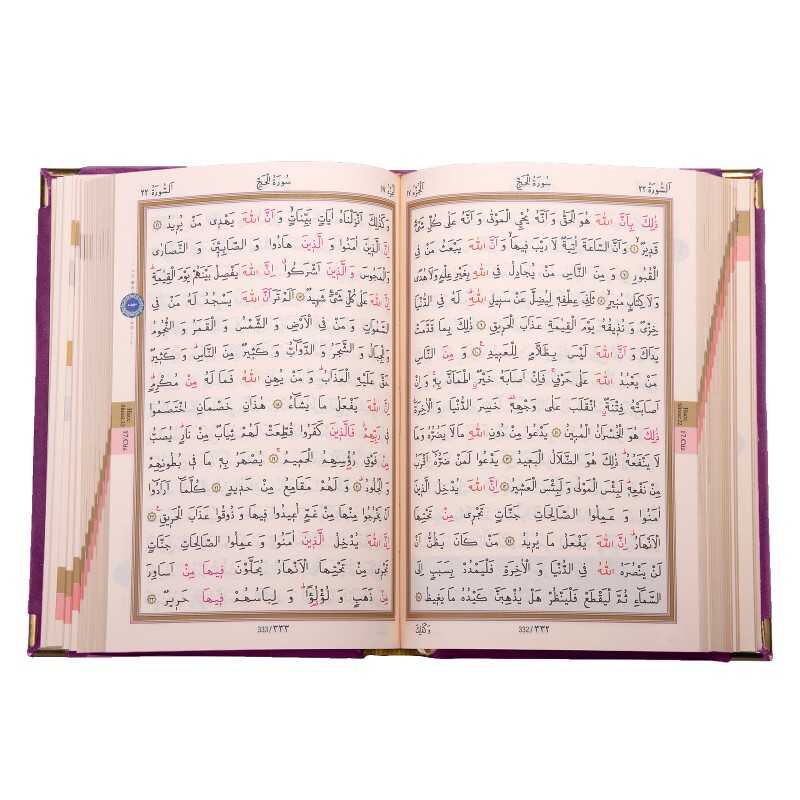 اَلسُّورَةُ ٢٢ سُورَةُ الْحَجِّ اَلْجُزْءُ ١٧
ذٰلِكَ بِاَنَّ اللّٰهَ هُوَ الْحَقُّ وَ اَنَّهُ يُحْيِي الْمَوْتٰى وَ اَنَّهُ عَلٰى كُلِّ شَيْءٍ
قَدِيرٌ ٦ وَ اَنَّ السَّاعَةَ اٰتِيَةٌ لَا رَيْبَ فِيهَا وَ اَنَّ اللّٰهَ يَبْعَثُ مَنْ فِي
الْقُبُورِ ٧ وَ مِنَ النَّاسِ مَنْ يُجَادِلُ فِي اللّٰهِ بِغَيْرِ عِلْمٍ وَلَا هُدًى
وَلَا كِتَابٍ مُنِيرٍ ٨ ثَانِيَ عِطْفِهِ لِيُضِلَّ عَنْ سَبِيلِ اللّٰهِ لَهُ فِي الدُّنْيَا
خِزْيٌ وَ نُذِيقُهُ يَوْمَ الْقِيٰمَةِ عَذَابَ الْحَرِيقِ ٩ ذٰلِكَ بِمَا قَدَّمَتْ
يَدَاكَ وَ اَنَّ اللّٰهَ لَيْسَ بِظَلَّامٍ لِلْعَبِيدِ ١٠ وَ مِنَ النَّاسِ
مَنْ يَعْبُدُ اللّٰهَ عَلٰى حَرْفٍ فَاِنْ اَصَابَهُ خَيْرٌ اطْمَاَنَّ بِهِ وَ اِنْ
اَصَابَتْهُ فِتْنَةٌ انْقَلَبَ عَلٰى وَجْهِهِ خَسِرَ الدُّنْيَا وَ الْاٰخِرَةَ
ذٰلِكَ هُوَ الْخُسْرَانُ الْمُبِينُ ١١ يَدْعُوا مِنْ دُونِ اللّٰهِ مَا لَا يَضُرُّهُ وَمَا
لَا يَنْفَعُهُ ذٰلِكَ هُوَ الضَّلَالُ الْبَعِيدُ ١٢ يَدْعُوا لَمَنْ ضَرُّهُ اَقْرَبُ
مِنْ نَفْعِهِ لَبِئْسَ الْمَوْلٰى وَ لَبِئْسَ الْعَشِيرُ ١٣ اِنَّ اللّٰهَ يُدْخِلُ الَّذِينَ
اٰمَنُوا وَ عَمِلُوا الصَّالِحَاتِ جَنَّاتٍ تَجْرِي مِنْ تَحْتِهَا
الْاَنْهَارُ اِنَّ اللّٰهَ يَفْعَلُ مَا يُرِيدُ ١٤ مَنْ كَانَ يَظُنُّ اَنْ
لَنْ يَنْصُرَهُ اللّٰهُ فِي الدُّنْيَا وَ الْاٰخِرَةِ فَلْيَمْدُدْ بِسَبَبٍ اِلَى
السَّمَاءِ ثُمَّ لْيَقْطَعْ فَلْيَنْظُرْ هَلْ يُذْهِبَنَّ كَيْدُهُ مَا يَغِيظُ ١٥
332/٣٣٢ وَكَذٰلِكَ
اَلْجُزْءُ ١٧ سُورَةُ الْحَجِّ اَلسُّورَةُ ٢٢
وَ كَذٰلِكَ اَنْزَلْنَاهُ اٰيَاتٍ بَيِّنَاتٍ وَ اَنَّ اللّٰهَ يَهْدِي مَنْ يُرِيدُ ١٦
اِنَّ الَّذِينَ اٰمَنُوا وَ الَّذِينَ هَادُوا وَ الصَّابِئِينَ وَ النَّصَارٰى
وَ الْمَجُوسَ وَ الَّذِينَ اَشْرَكُوا اِنَّ اللّٰهَ يَفْصِلُ بَيْنَهُمْ يَوْمَ الْقِيٰمَةِ
اِنَّ اللّٰهَ عَلٰى كُلِّ شَيْءٍ شَهِيدٌ ١٧ اَلَمْ تَرَ اَنَّ اللّٰهَ يَسْجُدُ لَهُ مَنْ فِي
السَّمٰوَاتِ وَ مَنْ فِي الْاَرْضِ وَ الشَّمْسُ وَ الْقَمَرُ وَ النُّجُومُ
وَ الْجِبَالُ وَ الشَّجَرُ وَ الدَّوَابُّ وَ كَثِيرٌ مِنَ النَّاسِ وَ كَثِيرٌ
حَقَّ عَلَيْهِ الْعَذَابُ وَ مَنْ يُهِنِ اللّٰهُ فَمَا لَهُ مِنْ مُكْرِمٍ
اِنَّ اللّٰهَ يَفْعَلُ مَا يَشَاءُ ١٨ هٰذَانِ خَصْمَانِ اخْتَصَمُوا
فِي رَبِّهِمْ فَالَّذِينَ كَفَرُوا قُطِّعَتْ لَهُمْ ثِيَابٌ مِنْ نَارٍ يُصَبُّ
مِنْ فَوْقِ رُؤُسِهِمُ الْحَمِيمُ ١٩ يُصْهَرُ بِهِ مَا فِي بُطُونِهِمْ
وَ الْجُلُودُ ٢٠ وَ لَهُمْ مَقَامِعُ مِنْ حَدِيدٍ ٢١ كُلَّمَا اَرَادُوا
اَنْ يَخْرُجُوا مِنْهَا مِنْ غَمٍّ اُعِيدُوا فِيهَا وَ ذُوقُوا عَذَابَ الْحَرِيقِ ٢٢
اِنَّ اللّٰهَ يُدْخِلُ الَّذِينَ اٰمَنُوا وَ عَمِلُوا الصَّالِحَاتِ جَنَّاتٍ
تَجْرِي مِنْ تَحْتِهَا الْاَنْهَارُ يُحَلَّوْنَ فِيهَا مِنْ اَسَاوِرَ
مِنْ ذَهَبٍ وَ لُؤْلُؤًا وَ لِبَاسُهُمْ فِيهَا حَرِيرٌ ٢٣
333/٣٣٣
17.Cüz
17.Cüz